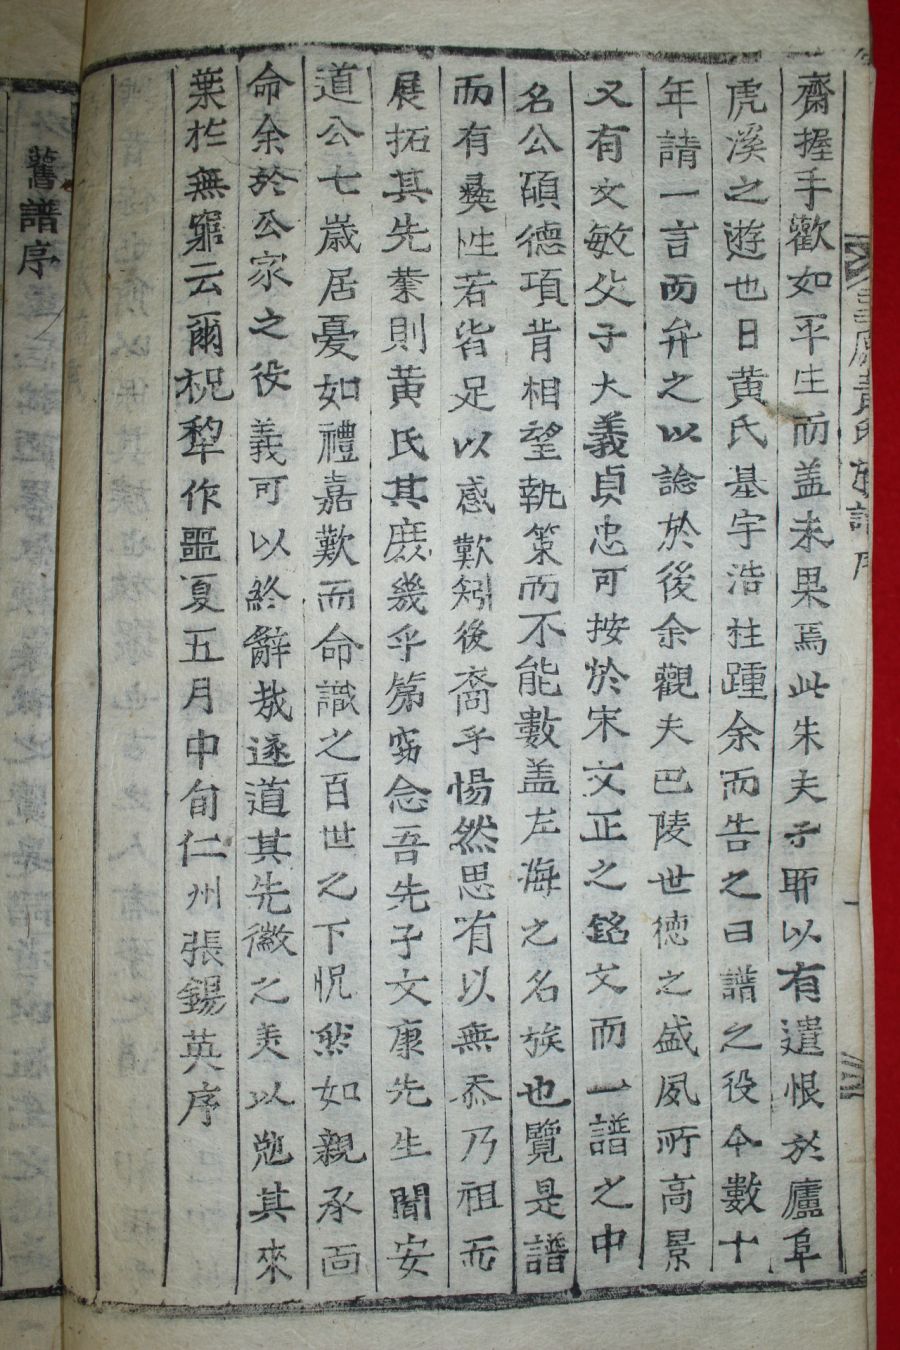 齋握手歡如平生而盖未果焉此朱夫子耶以有遣恨於廬阜
虎溪之遊也日黄氏基宇浩柱踵余而告之曰譜之役今數十
年請一言而弁之以諗於後余觀夫巴陵世德之盛夙所高景
又有文敏父子大義貞忠可按於宋文正之銘文而一譜之中
名公碩德項背相望執策而不能數盖左海之名族也覽是譜
而有彜性若皆足以感歎矧後裔乎惕然思有以無忝乃祖而
展拓其先業則黄氏其庶幾乎第窃念吾先子文康先生聞安
道公七歲居憂如禮嘉歎而命識之百世之下怳然如親承面
命余於公家之役義可以終辭哉遂道其先徽之美以勉其來
葉於無窮云爾祝犂作噩夏五月中旬仁州張錫英序
舊譜序